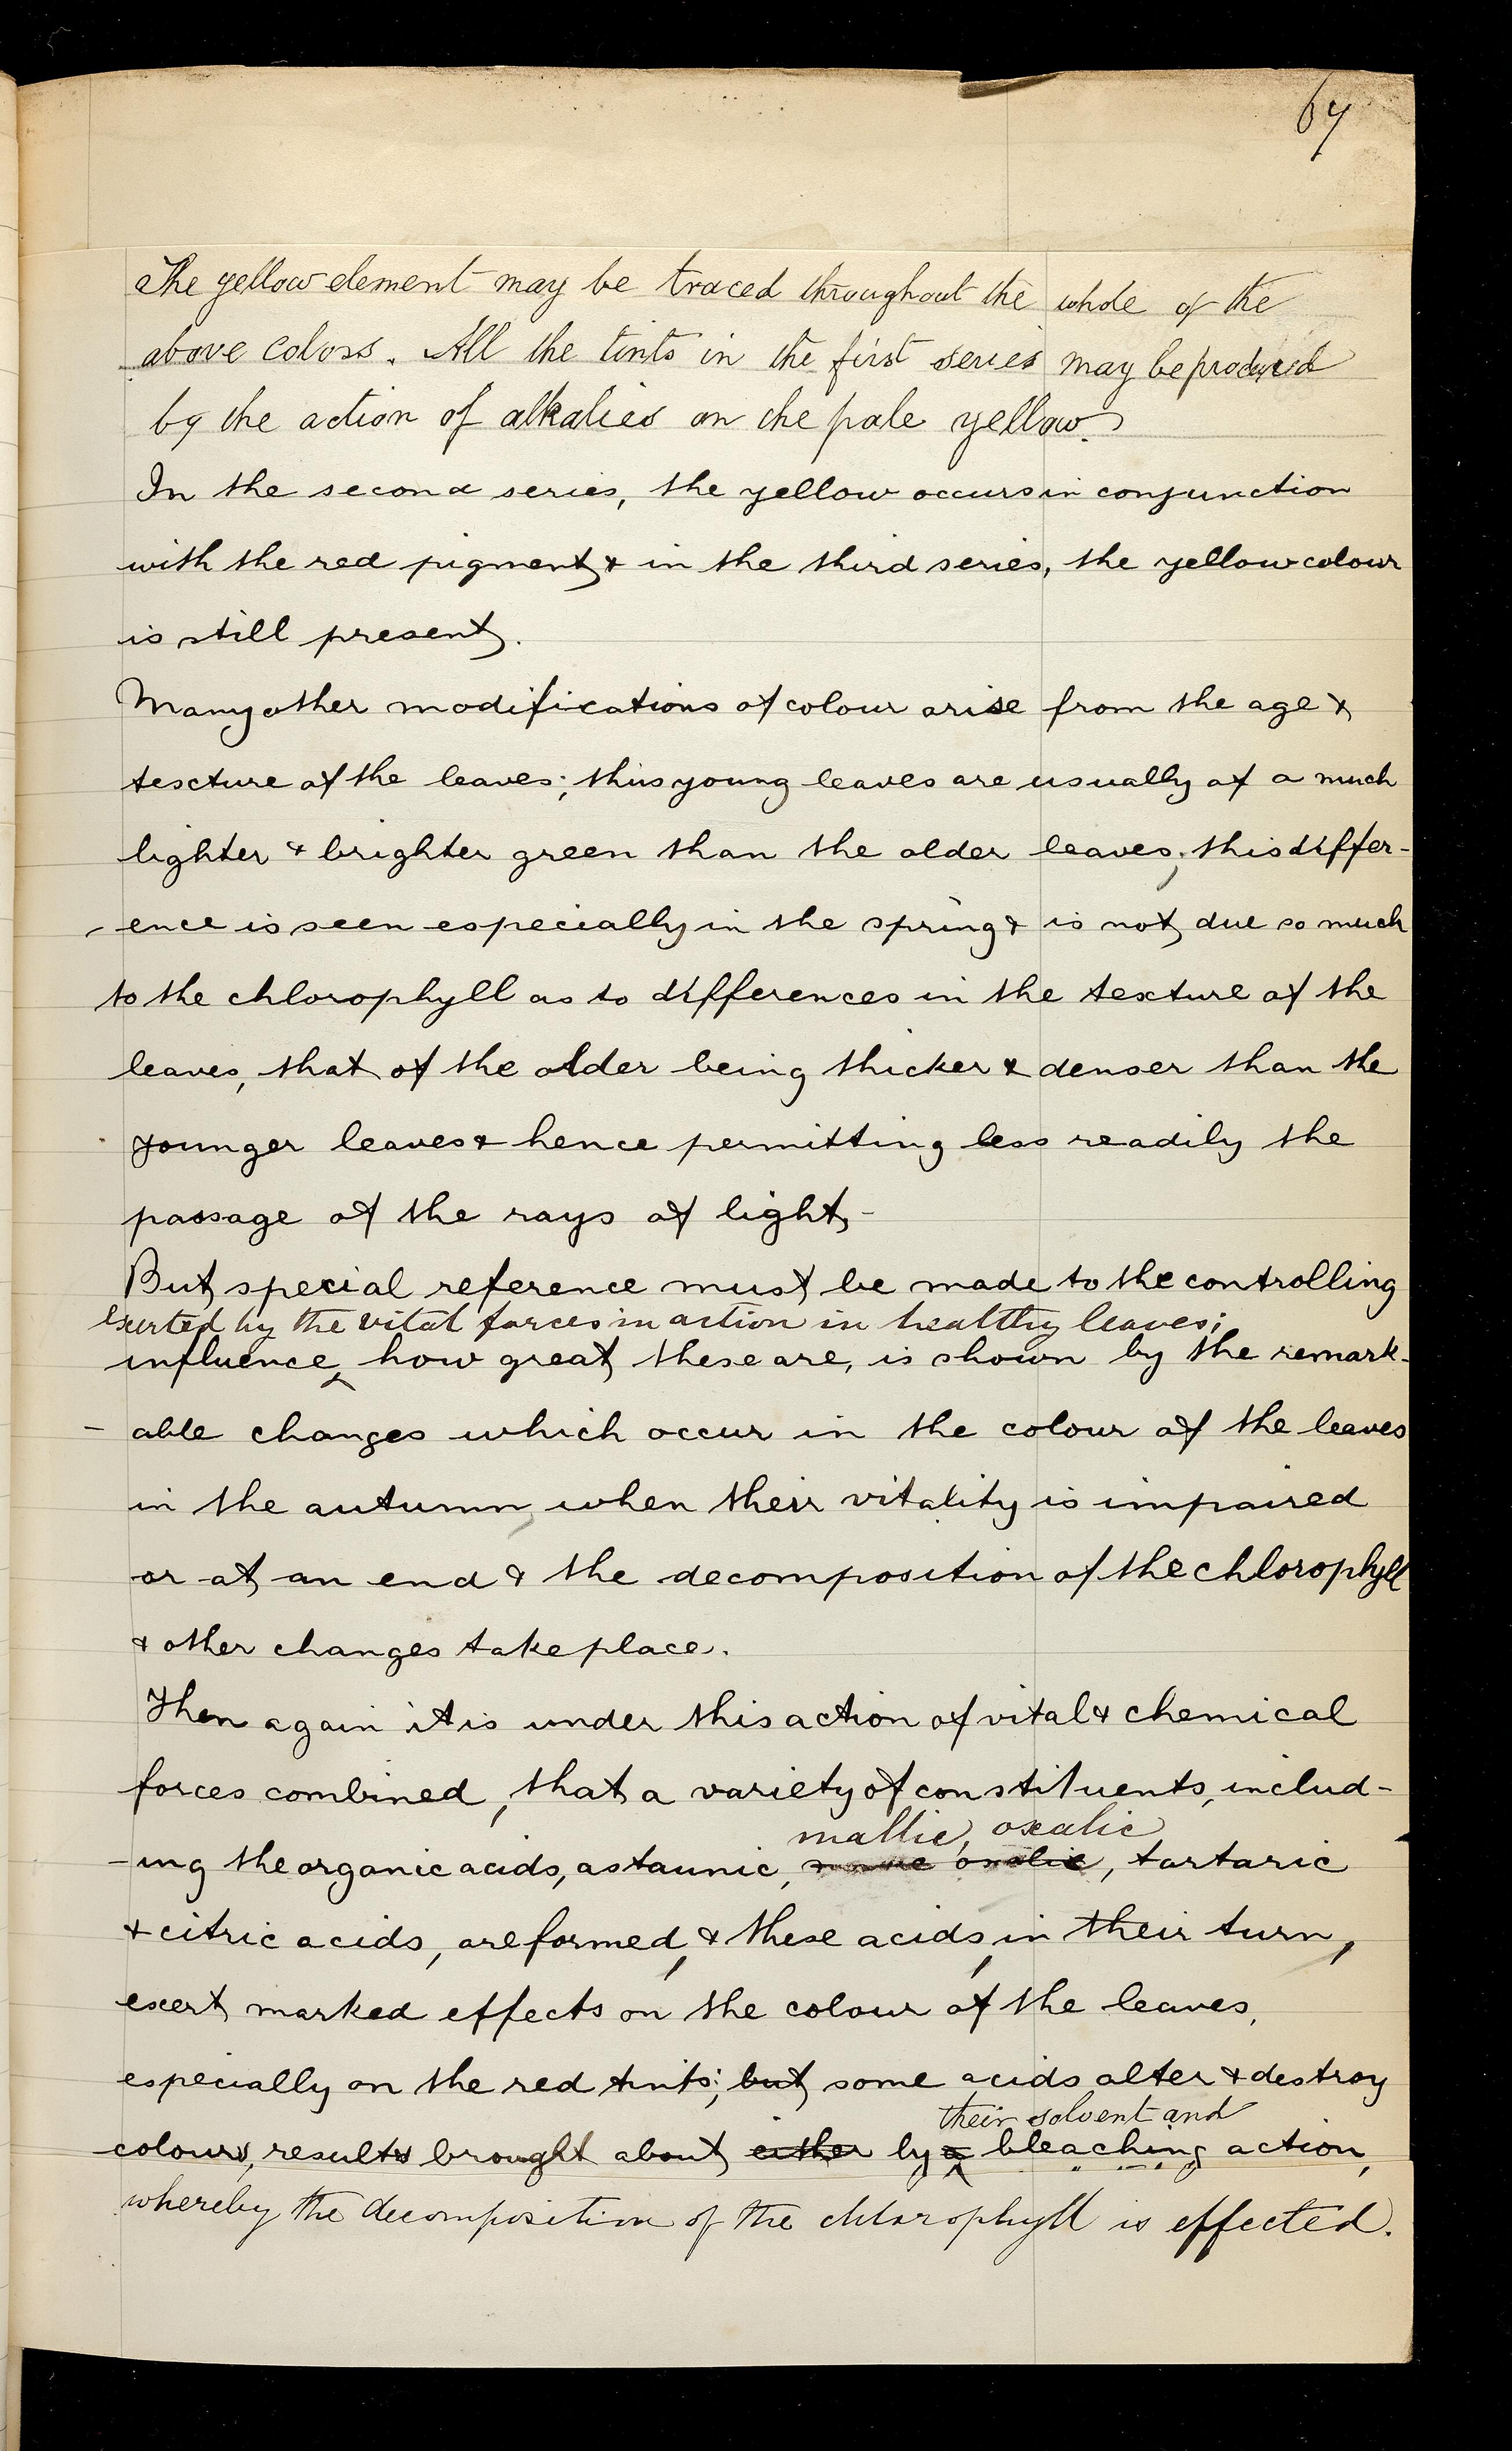 67
The yellow element may be traced throughout the whole of the
above colors. All the tints in the first series may be produced
by the action of alkalies on the pale yellow.
In the second series, the yellow occurs in conjunction
with the red pigment & in the third series, the yellow colour
is still present.
Many other modifications of colour arise from the age &
texture of the leaves; thus young leaves are usually of a much
lighter & brighter green than the older leaves; this differ-
-ence is seen especially in the spring & is not due so much
to the chlorophyll as to differences in the texture of the
leaves, that of the older being thicker & denser than the
younger leaves & hence permitting less readily the
passage of the rays of light-
But special reference must be made to the controlling
exerted by the vital forces in action in healthy leaves;
influence, how great these are, is shown by the remark-
-able changes which occur in the colour of the leaves
in the autumn, when their vitality is impaired
or at an end & the decomposition of the chlorophyll
& other changes take place.
Then again it is under this action of vital & chemical
forces combined, that a variety of constituents, includ-
mallic, oxalic
-ing the organic acids, as taunic, oxalic, tartaric
& citric acids, are formed, & these acids, in their turn,
exert marked effects on the colour of the leaves,
especially on the red tints; but some acids alter & destroy
their solvent and
colours, results brought about either by a bleaching action,
whereby the decomposition of the chlorophyll is effected.